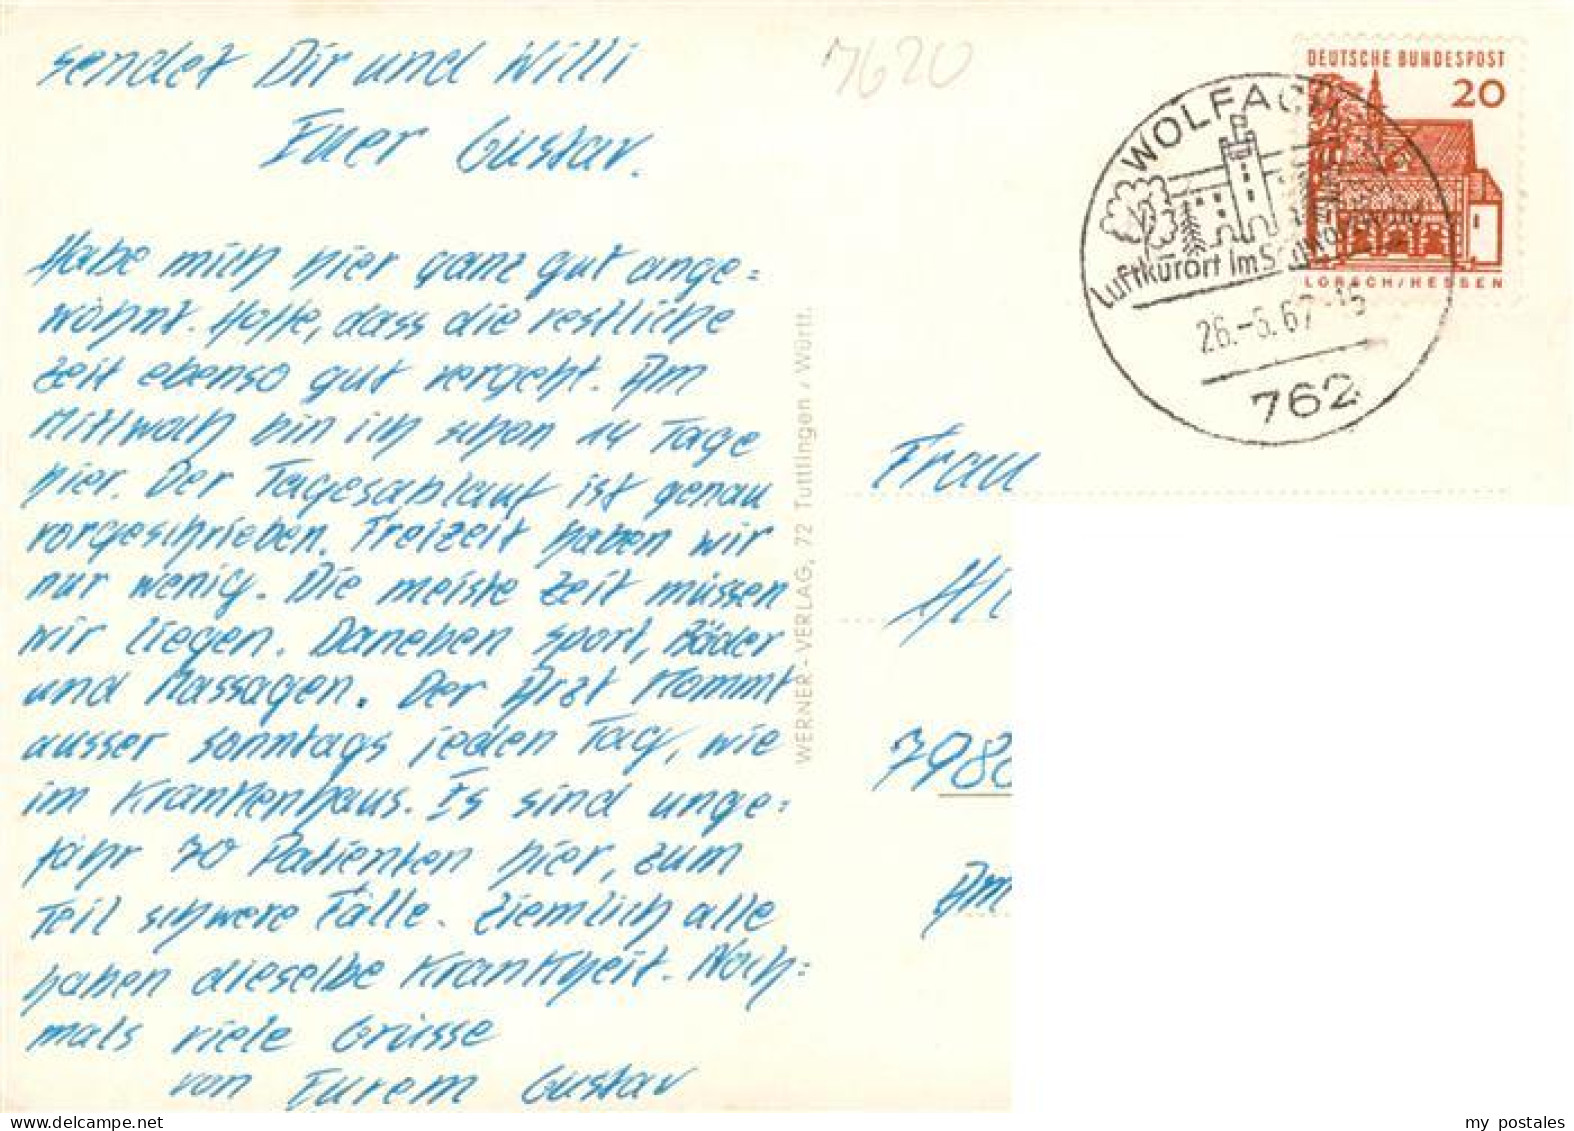 sendet Dir und Willi
Euer Gustav.
Habe mich hier ganz gut ange=
wöhnt. Hoffe, dass die restliche
Zeit ebenso gut vergeht. Am
Mittwoch bin ich schon 14 Tage
hier. Der Tagesablauf ist genau
vorgeschrieben. Freizeit haben wir
nur wenig. Die meiste Zeit müssen
wir liegen. Daneben Sport, Bäder
und Massagen. Der Arzt kommt
ausser sonntags jeden Tag, wie
im Krankenhaus. Es sind unge=
fähr 70 Patienten hier, zum
Teil schwere Fälle. Ziemlich alle
haben dieselbe Krankheit. Noch=
mals viele Grüsse
von Eurem Gustav
WERNER-VERLAG, 72 Tuttlingen / Württ.
7620
DEUTSCHE BUNDESPOST
20
LORSCH/HESSEN
WOLFACH
Luftkurort im Schwarzwald
26.-5.67-15
762
Frau
798
Am
my postales